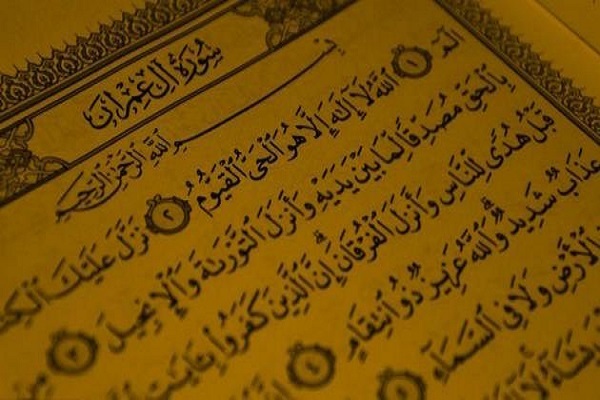 سُورَةُ آلِ عِمْرَانَ
بِسْمِ اللَّهِ الرَّحْمَٰنِ الرَّحِيمِ
الٓمٓ ١ اللَّهُ لَا إِلَٰهَ إِلَّا هُوَ الْحَيُّ الْقَيُّومُ ٢ نَزَّلَ عَلَيْكَ
بِالْحَقِّ مُصَدِّقًا لِمَا بَيْنَ يَدَيْهِ وَأَنزَلَ التَّوْرَىٰةَ وَالْإِنجِيلَ ٣
قَبْلُ هُدًى لِلنَّاسِ وَأَنزَلَ الْفُرْقَانَ ۗ إِنَّ الَّذِينَ كَفَرُوا بِـَٔايَٰتِ
عَذَابٌ شَدِيدٌ ۗ وَاللَّهُ عَزِيزٌ ذُو انتِقَامٍ ٤
الْأَرْضِ وَلَا فِي السَّمَاءِ ٥